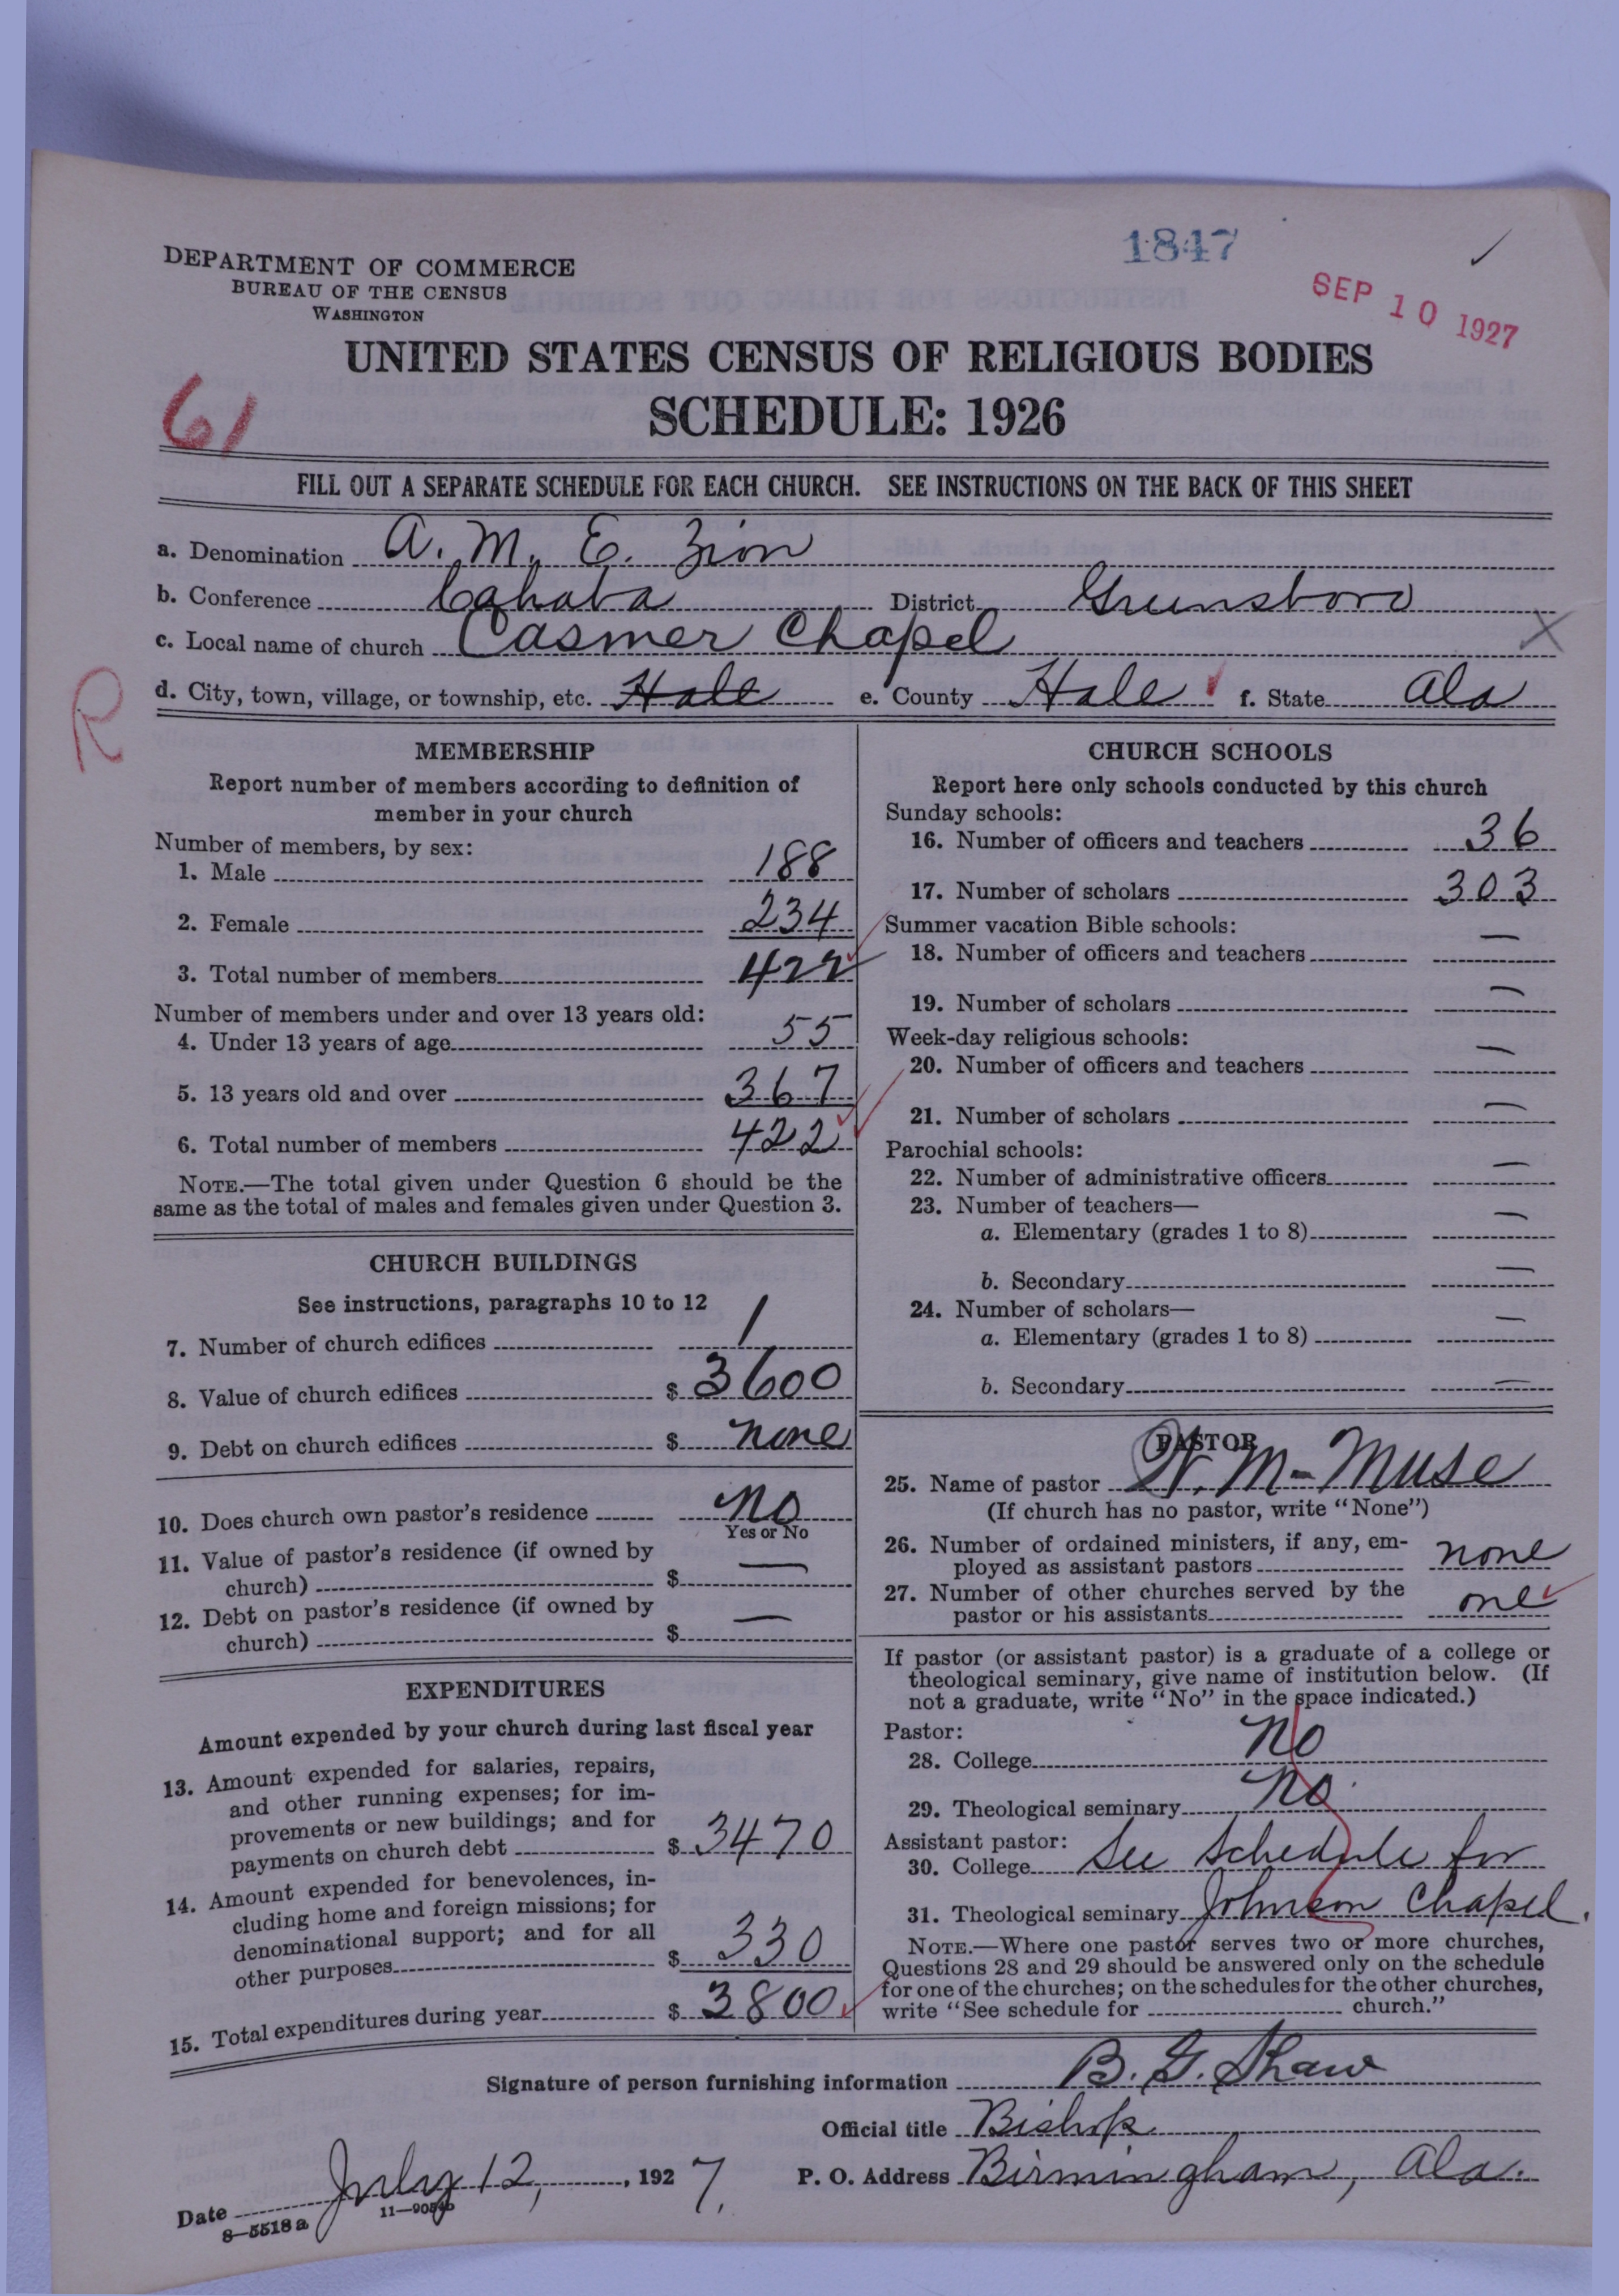 1847
DEPARTMENT OF COMMERCE
BUREAU OF THE CENSUS
WASHINGTON
SEP 10 1927
UNITED STATES CENSUS OF RELIGIOUS BODIES
SCHEDULE: 1926
61
FILL OUT A SEPARATE SCHEDULE FOR EACH CHURCH. SEE INSTRUCTIONS ON THE BACK OF THIS SHEET
a. Denomination A. M. E. Zion
b. Conference Cahaba District Greensboro
c. Local name of church Casmer Chapel X
d. City, town, village, or township, etc. Hale e. County Hale f. State Ala
R
MEMBERSHIP
Report number of members according to definition of
member in your church
Number of members, by sex:
1. Male 188
2. Female 234
3. Total number of members 422
Number of members under and over 13 years old:
4. Under 13 years of age 55
5. 13 years old and over 367
6. Total number of members 422
NOTE.—The total given under Question 6 should be the
same as the total of males and females given under Question 3.
CHURCH BUILDINGS
See instructions, paragraphs 10 to 12
7. Number of church edifices 1
8. Value of church edifices $ 3600
9. Debt on church edifices $ none
10. Does church own pastor's residence No
Yes or No
11. Value of pastor's residence (if owned by
church) $ —
12. Debt on pastor's residence (if owned by
church) $ —
EXPENDITURES
Amount expended by your church during last fiscal year
13. Amount expended for salaries, repairs,
and other running expenses; for im-
provements or new buildings; and for
payments on church debt $ 3470
14. Amount expended for benevolences, in-
cluding home and foreign missions; for
denominational support; and for all
other purposes $ 330
15. Total expenditures during year $ 3800
CHURCH SCHOOLS
Report here only schools conducted by this church
Sunday schools:
16. Number of officers and teachers 36
17. Number of scholars 303
Summer vacation Bible schools:
18. Number of officers and teachers —
19. Number of scholars —
Week-day religious schools:
20. Number of officers and teachers —
21. Number of scholars —
Parochial schools:
22. Number of administrative officers —
23. Number of teachers—
a. Elementary (grades 1 to 8) —
b. Secondary —
24. Number of scholars—
a. Elementary (grades 1 to 8) —
b. Secondary —
PASTOR
25. Name of pastor W. M-Muse
(If church has no pastor, write "None")
26. Number of ordained ministers, if any, em-
ployed as assistant pastors none
27. Number of other churches served by the
pastor or his assistants one
If pastor (or assistant pastor) is a graduate of a college or
theological seminary, give name of institution below. (If
not a graduate, write "No" in the space indicated.)
Pastor:
28. College No
29. Theological seminary No
Assistant pastor:
30. College See Schedule for
31. Theological seminary Johnson Chapel.
NOTE.—Where one pastor serves two or more churches,
Questions 28 and 29 should be answered only on the schedule
for one of the churches; on the schedules for the other churches,
write "See schedule for church."
Signature of person furnishing information B. G. Shaw
Official title Bishop
Date July 12, , 1927. P. O. Address Birmingham, Ala.
8—5518a 11—9054b